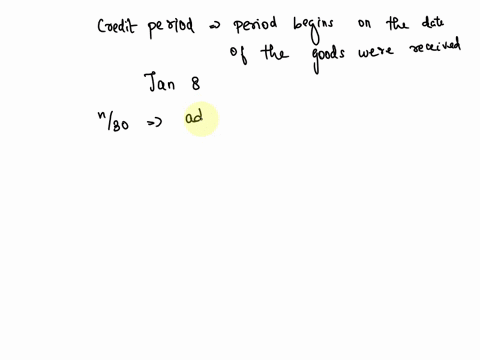 Credit period ⇒ period begins on the date
of the goods were received
Jan 8
n/30 => ad